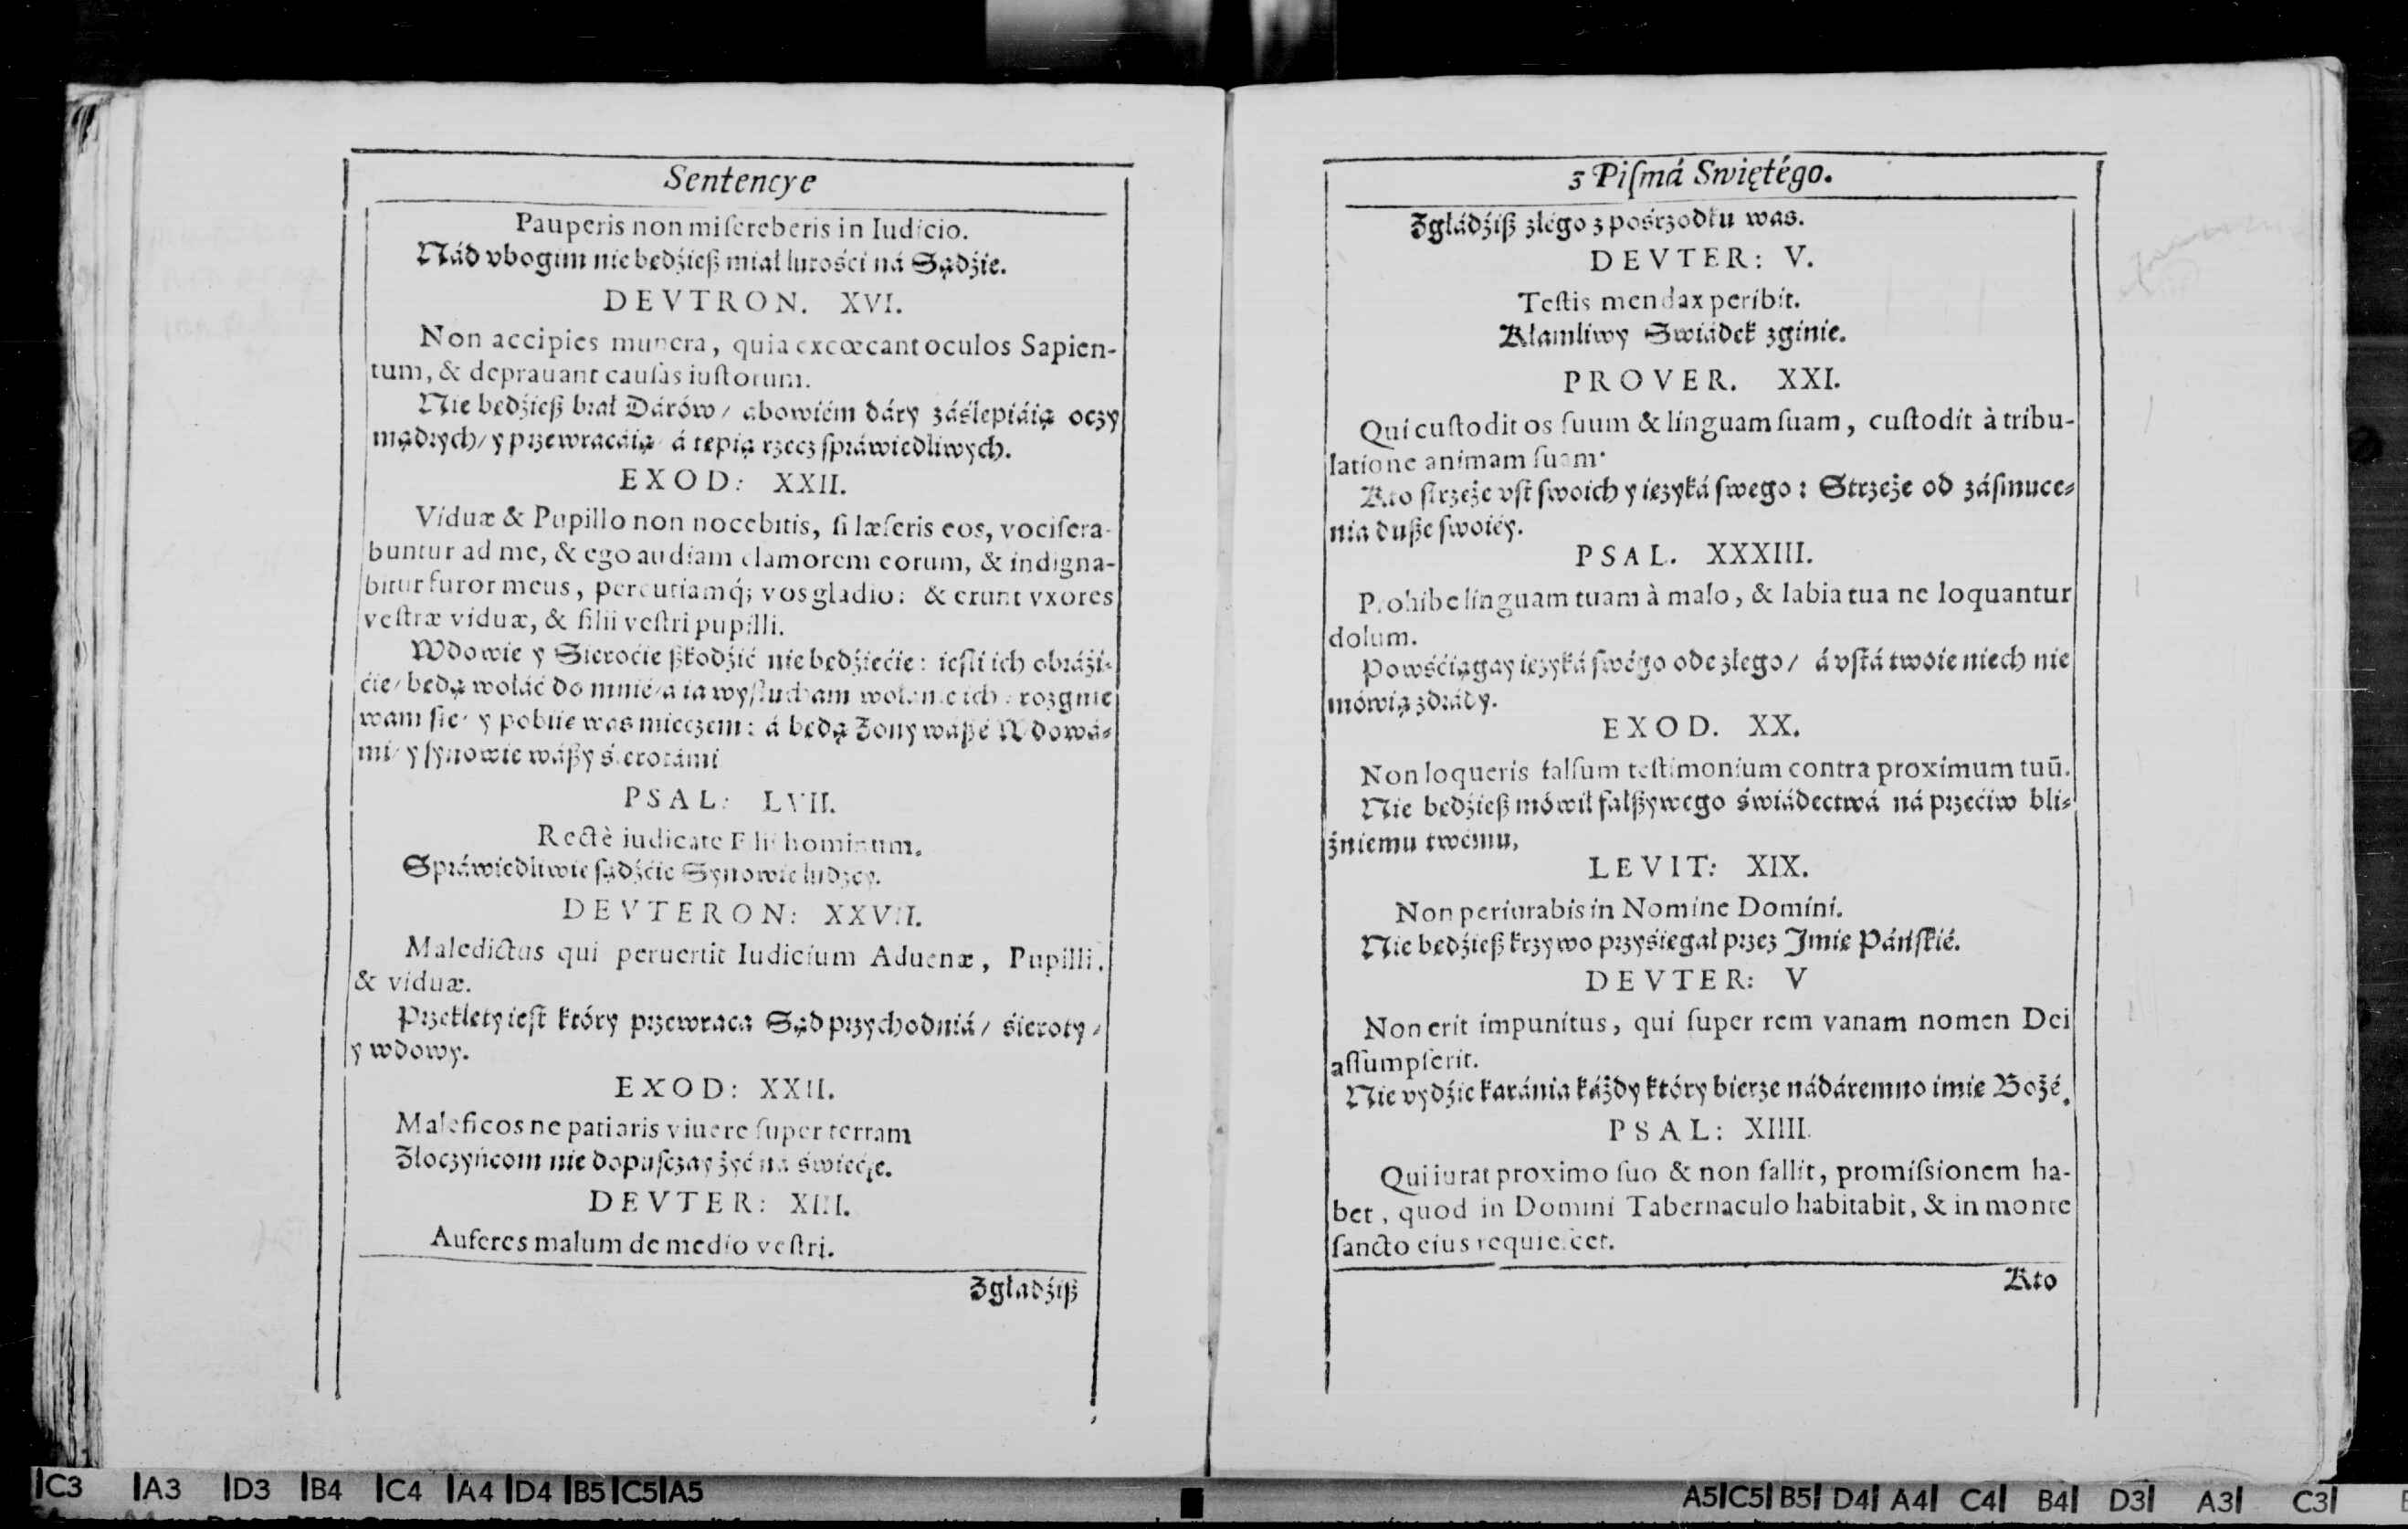 Sentencye
Pauperis non miſereberis in Iudicio.
Nád vbogim nie będźieß miał lutośći ná Sądźie.
DEVTRON. XVI.
Non accipies munera, quia excœcant oculos Sapien-
tum, & deprauant cauſas iuſtorum.
Nie będźieß brał Dárów/ abowiém dáry záślepiáią oczy
mądrych/ y przewracáią/ á tępią rzecz ſpráwiedliwych.
EXOD: XXII.
Viduæ & Pupillo non nocebitis, ſi læſeris eos, vociferа-
buntur ad me, & ego audiam clamorem eorum, & indigna-
bitur furor meus, percutiamq́; vos gladio: & erunt vxores
veſtræ viduæ, & filii veſtri pupilli.
Wdowie y Sieroćie ßkodźić nie będźiećie: ieſli ich obráźi-
ćie/ będą wołáć do mnie/ a ia wyſłucham wołanie ich: rozgnie
wam ſie/ y pobiię was mieczem: á będą Żony wáßé Wdowá-
mi/ y ſynowie wáßy śierotámi
PSAL: LVII.
Rectè iudicate Filii hominum.
Spráwiedliwie ſądźćie Synowie ludzcy.
DEVTERON: XXVII.
Maledictus qui peruertit Iudicium Aduenæ, Pupilli,
& viduæ.
Przeklęty ieſt który przewraca Sąd przychodniá/ śieroty/
y wdowy.
EXOD: XXII.
Maleficos ne patiaris viuere ſuper terram
Złoczyńcom nie dopuſczay żyć ná świećie.
DEVTER: XIII.
Auferes malum de medio veſtri.
Zgładźiß
z Piſmá Swiętégo.
Zgłádźiß złégo z pośrzodku was.
DEVTER: V.
Teſtis mendax peribit.
Kłamliwy Swiádek zginie.
PROVER. XXI.
Qui cuſtodit os ſuum & linguam ſuam, cuſtodit à tribu-
latione animam ſuam.
Kto ſtrzeże vſt ſwoich y ięzyká ſwego: Strzeże od záſmuce-
nia dußę ſwoięy.
PSAL. XXXIII.
Prohibe linguam tuam à malo, & labia tua ne loquantur
dolum.
Powśćiągay ięzyká ſwégo ode złego/ á vſtá twóie niech nie
mówią zdrády.
EXOD. XX.
Non loqueris falſum teſtimonium contra proximum tuũ.
Nie będźieß mówił fałßywego świádectwá ná przećiw bli-
źniemu twému,
LEVIT: XIX.
Non periurabis in Nomine Domini.
Nie będźieß krzywo przyśięgał przez Jmię Páńſkié.
DEVTER: V
Non erit impunitus, qui ſuper rem vanam nomen Dei
aſſumpſerit.
Nie vydźie karánia káżdy który bierze nádáremno imię Bożé.
PSAL: XIIII.
Qui iurat proximo ſuo & non fallit, promiſsionem ha-
bet, quod in Domini Tabernaculo habitabit, & in monte
ſancto eius requieſcet.
Kto
C3 A3 D3 B4 C4 A4 D4 B5 C5 A5
A5 C5 B5 D4 A4 C4 B4 D3 A3 C3